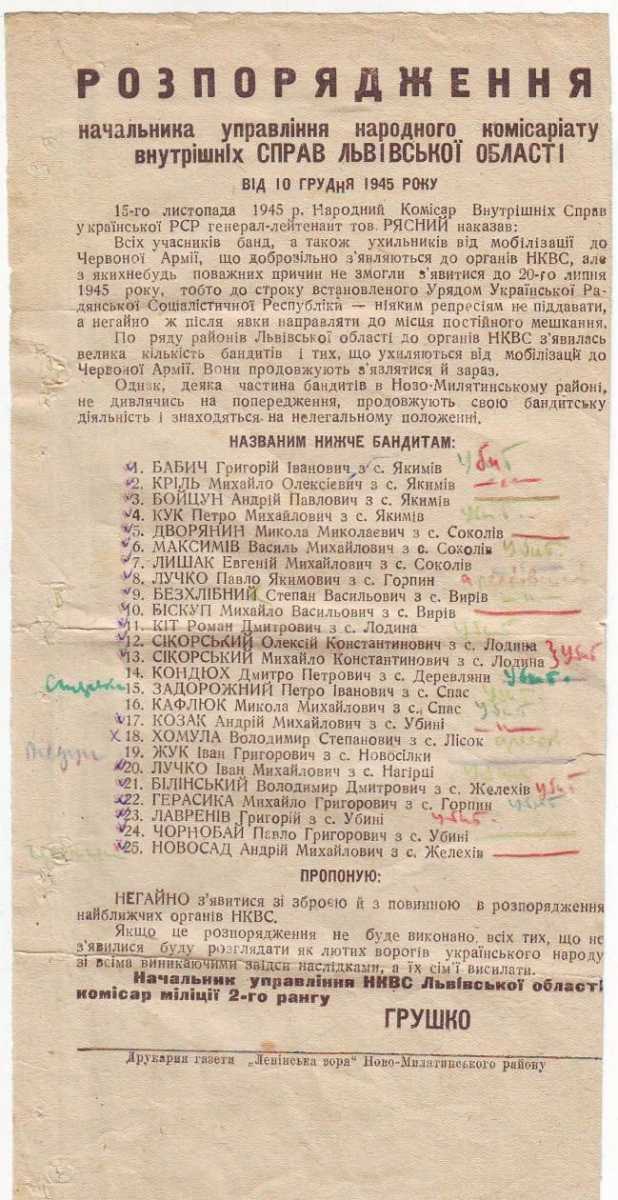 РОЗПОРЯДЖЕННЯ
начальника управління народного комісаріату
внутрішніх СПРАВ ЛЬВІВСЬКОЇ ОБЛАСТІ
ВІД 10 ГРУДНЯ 1945 РОКУ
15-го листопада 1945 р. Народний Комісар Внутрішніх Справ
української РСР генерал-лейтенант тов. РЯСНИЙ наказав:
Всіх учасників банд, а також ухильників від мобілізації до
Червоної Армії, що доброзільно з'являються до органів НКВС, але
з якихнебудь поважних причин не змогли з'явитися до 20-го липня
1945 року, тобто до строку встановленого Урядом Української Ра-
дянської Соціалістичної Республіки — ніяким репресіям не піддавати,
а негайно ж після явки направляти до місця постійного мешкання.
По ряду районів Львівської області до органів НКВС з'явилась
велика кількість бандитів і тих, що ухиляються від мобілізації до
Червоної Армії. Вони продовжують з'являтися й зараз.
Однак, деяка частина бандитів в Нозо-Милятинському районі,
не дивлячись на попередження, продовжують свою бандитську
діяльність і знаходяться на нелегальному положенні.
НАЗВАНИМ НИЖЧЕ БАНДИТАМ:
1. БАБИЧ Григорій Іванович з с. Якимів убит
2. КРІЛЬ Михайло Олексієвич з с. Якимів —"—
3. БОЙЦУН Андрій Павлович з с. Якимів
4. КУК Петро Михайлович з с. Якимів убит.
5. ДВОРЯНИН Микола Миколаєвич з с. Соколів
6. МАКСИМІВ Василь Михайлович з с. Соколів убит.
7. ЛИШАК Евгеній Михайлович з с. Соколів
8. ЛУЧКО Павло Якимович з с. Горпин
9. БЕЗХЛІБНИЙ Степан Васильович з с. Вирів
10. БІСКУП Михайло Васильович з с. Вирів
11. КІТ Роман Дмитрович з с. Лодина
12. СІКОРСЬКИЙ Олексій Константинович з с. Лодина
13. СІКОРСЬКИЙ Михайло Константинович з с. Лодина } убит
14. КОНДЮХ Дмитро Петрович з с. Деревляни убит.
15. ЗАДОРОЖНИЙ Петро Іванович з с. Спас
16. КАФЛЮК Микола Михайлович з с. Спас убит
17. КОЗАК Андрій Михайлович з с. Убині —"—
18. ХОМУЛА Володимир Степанович з с. Лісок
19. ЖУК Іван Григорович з с. Новосілки
20. ЛУЧКО Іван Михайлович з с. Нагірці
21. БІЛІНСЬКИЙ Володимир Дмитрович з с. Желехів убит
22. ГЕРАСИКА Михайло Григорович з с. Горпин убит
23. ЛАВРЕНІВ Григорій з с. Убині убит.
24. ЧОРНОБАЙ Павло Григорович з с. Убині
25. НОВОСАД Андрій Михайлович з с. Желехів
ПРОПОНУЮ:
НЕГАЙНО з'явитися зі зброєю й з повинною в розпорядження
найближчих органів НКВС.
Якщо це розпорядження не буде виконано, всіх тих, що не
з'явилися буду розглядати як лютих ворогів українського народу
зі всіма виникаючими звідси наслідками, а їх сім'ї висилати.
Начальник управління НКВС Львівської області
комісар міліції 2-го рангу
ГРУШКО
Друкарня газети „Ленінська зоря" Ново-Милятинського району